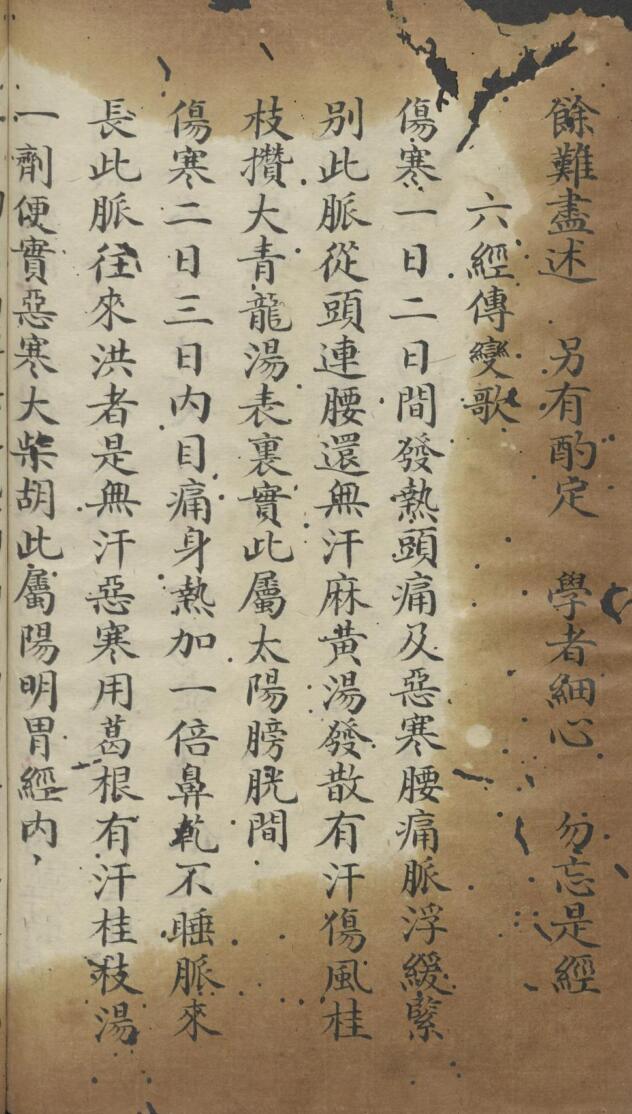 餘難盡述　另有酌定　學者細心　勿忘是經
六經傳變歌
傷寒一日二日間發熱頭痛及惡寒腰痛脈浮緩緊
別此脈從頭連腰還無汗麻黄湯發散有汗傷風桂
枝攢大青龍湯表裏實此屬太陽膀胱間
傷寒二日三日内目痛身熱加一倍鼻乾不睡脈來
長此脈往來洪者是無汗惡寒用葛根有汗桂枝湯
一劑便實惡寒大柴胡此屬陽明胃經内